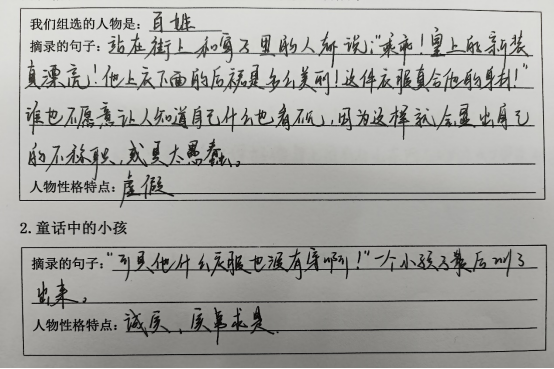 我们组选的人物是：百姓
摘录的句子：站在街上和窗子里的人都说："乖乖！皇上的新装
真漂亮！他上衣下面的后裾是多么美丽！这件衣服真合他的身材！"
谁也不愿意让人知道自己什么也看不见，因为这样就会显出自己
的不称职，或是太愚蠢。
人物性格特点：虚假
2.童话中的小孩
摘录的句子："可是他什么衣服也没有穿啊！"一个小孩子最后叫了
出来。
人物性格特点：诚实、实事求是